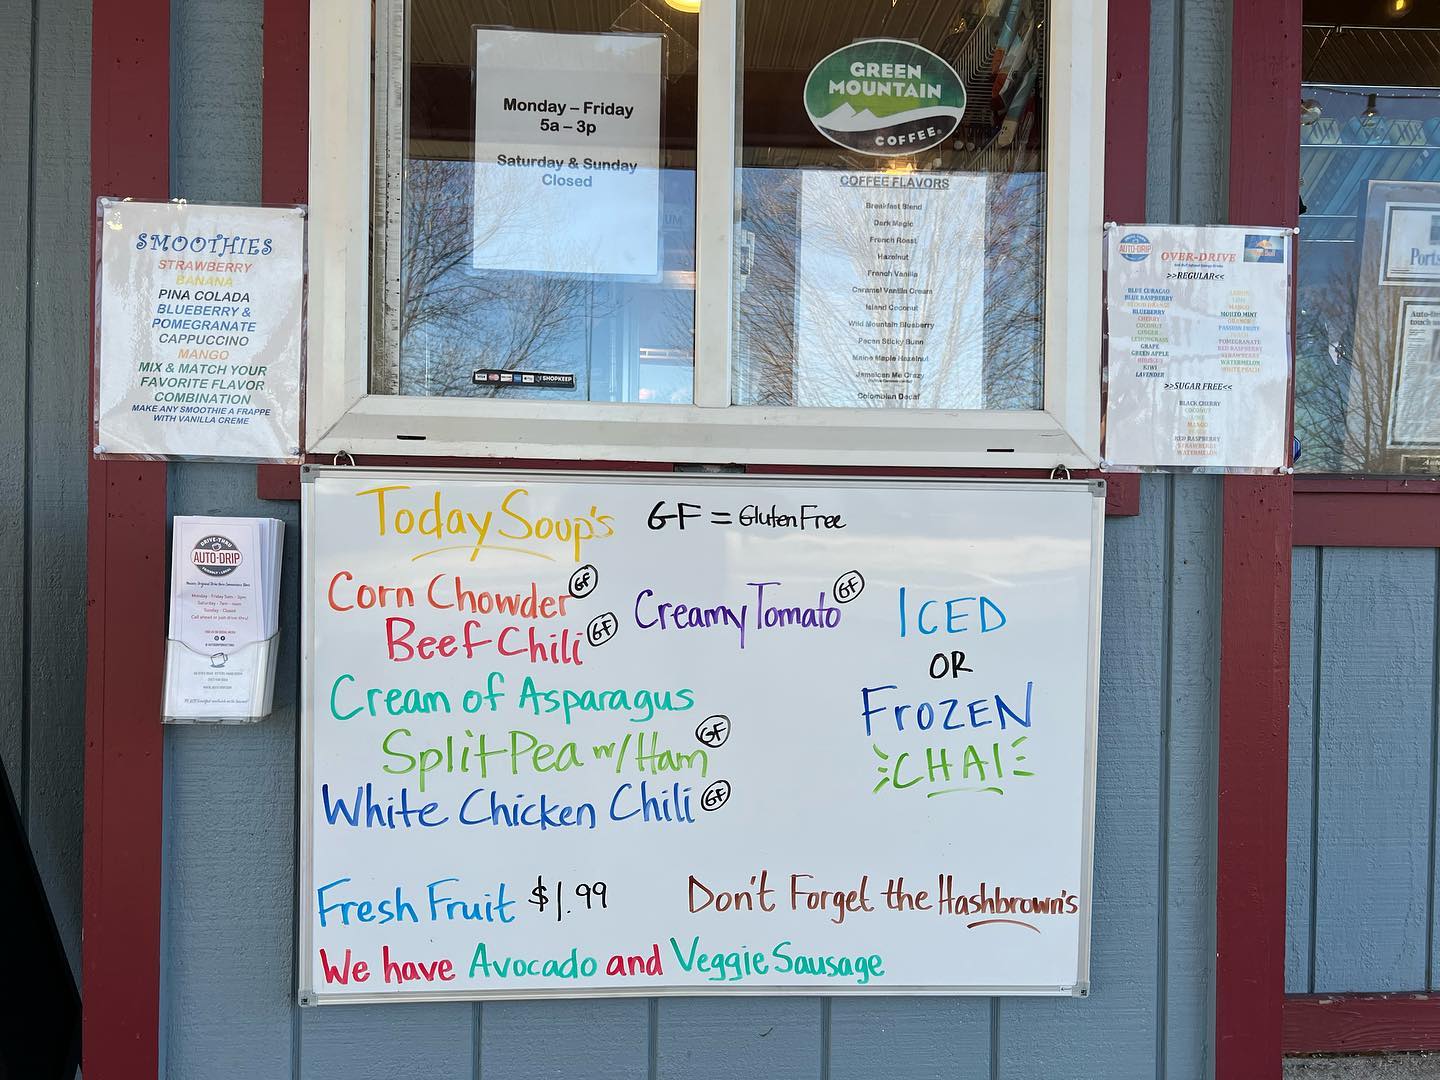 Monday – Friday
5a – 3p
Saturday & Sunday
Closed
GREEN
MOUNTAIN
COFFEE
COFFEE FLAVORS
Breakfast Blend
Dark Magic
French Roast
Hazelnut
French Vanilla
Caramel Vanilla Cream
Island Coconut
Wild Mountain Blueberry
Pecan Sticky Bunn
Maine Maple Hazelnut
Jamaican Me Crazy
Colombian Decaf
SHOPKEEP
SMOOTHIES
STRAWBERRY
BANANA
PINA COLADA
BLUEBERRY &
POMEGRANATE
CAPPUCCINO
MANGO
MIX & MATCH YOUR
FAVORITE FLAVOR
COMBINATION
MAKE ANY SMOOTHIE A FRAPPE
WITH VANILLA CREME
AUTO-DRIP
OVER-DRIVE
>>REGULAR<<
BLUE CURACAO
BLUE RASPBERRY
BLOOD ORANGE
BLUEBERRY
CHERRY
COCONUT
GINGER
LEMONGRASS
GRAPE
GREEN APPLE
HIBISCUS
KIWI
LAVENDER
MANGO
MOJITO MINT
ORANGE
PASSION FRUIT
POMEGRANATE
RED RASPBERRY
STRAWBERRY
WATERMELON
WHITE PEACH
>>SUGAR FREE<<
BLACK CHERRY
COCONUT
LIME
MANGO
RED RASPBERRY
STRAWBERRY
WATERMELON
Ports
DRIVE-THRU
AUTO-DRIP
FRIENDLY LOCAL
Monday - Friday 5am - 3pm
Sunday - Closed
Call ahead or just drive thru!
Today Soup's
GF = Gluten Free
Corn Chowder GF
Beef Chili GF
Creamy Tomato GF
Cream of Asparagus
Split Pea w/ Ham GF
White Chicken Chili GF
ICED
OR
FROZEN
CHAI
Fresh Fruit $1.99
Don't Forget the Hashbrown's
We have Avocado and Veggie Sausage